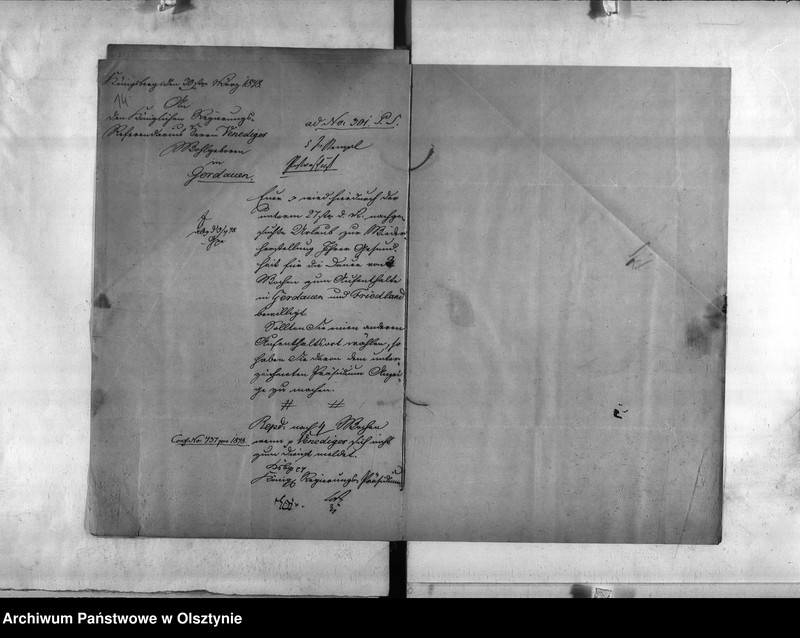 Königsberg den 30ten März 1878.
14
An
den Königlichen Regierungs-
Referendarius Herrn Venediger
Wohlgeboren
in
Gerdauen.
ad No: 301. P. S.
Euer p wird hierdurch der
unterm 27ten d. Mts. nachge-
suchte Urlaub zur Wieder-
herstellung Ihrer Gesund-
heit für die Dauer von
Wochen zum Aufenthalte
in Gerdauen und Friedland
bewilligt.
Sollten Sie einen anderen
Aufenthaltsort wählen, so
haben Sie davon dem unter-
zeichneten Präsidium Anzei-
ge zu machen.
Repd. nach 4 Wochen
wenn p Venediger sich nicht
zum Dienst meldet.
Conf. No 737 pro 1878.
Königl. Regierungs-Präsidium
Archiwum Państwowe w Olsztynie